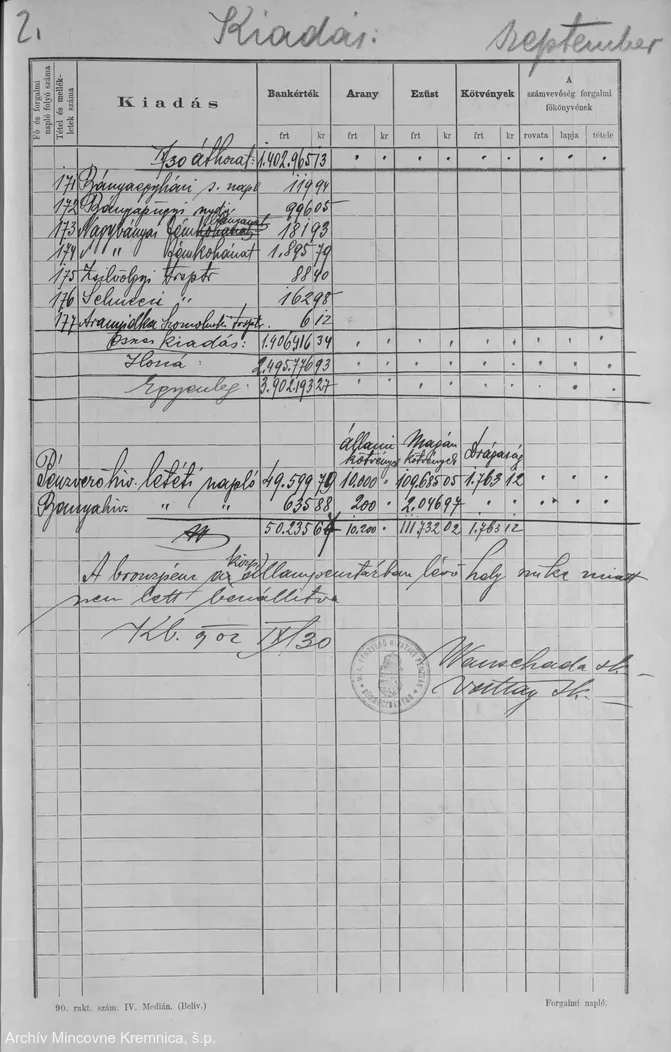 2. Kiadás: September
Fő és forgalmi napló folyó száma
Tétel és mellékletek száma
Kiadás
Bankérték Arany Ezüst Kötvények
A számvevőség forgalmi főkönyvének
frt kr frt kr frt kr frt kr rovata lapja tétele
1.402.965 13
171 s. napl 119 94
172 996 05
173 Nagybányai 181 93
174 " " Fémkohónat 1.895 79
175 Zsilvölgyi 88 40
176 " 162 98
177 Aranyidka 6 12
Összes kiadás: 1.406.416 34
Hozzá: 2.495.776 93
Egyenleg: 3.902.193 27
állami kötvények Magán kötvények Drágaság
Pénzverőhiv. letéti napló 49.599 79 10.000 109.685 05 1.763 12
Bányahiv. " " 635 88 200 2.046 97
50.235 67 10.200 111.732 02 1.763 12
A bronzpénz az állampénztárban lévő hely miatt
nem lett beállítva
Kb. 902 IX/30
90. rakt. szám. IV. Medián. (Beliv.)
Forgalmi napló.
Archív Mincovne Kremnica, š.p.